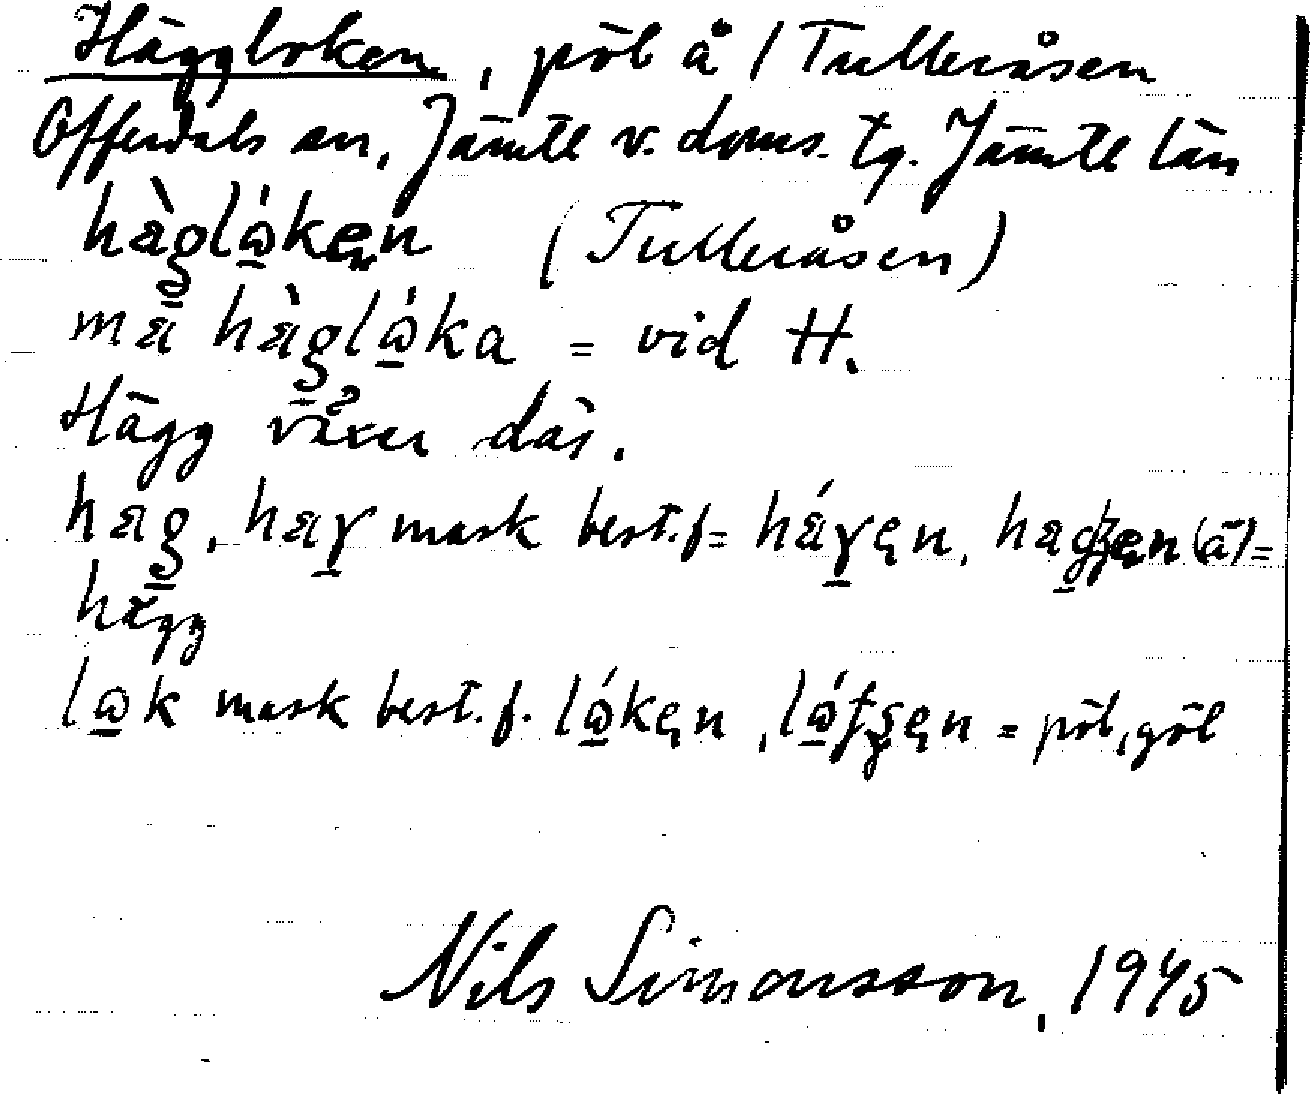 Häggloken, pöl å / Tulleråsen
Offerdals sn, Jämtl v. doms. tg. Jämtl län
hàglǻken (Tulleråsen)
mä hàglǻ̱ka = vid H.
Hägg växer där.
hag, haɣ mask best. f = háɣen, (ä) =
hägg
lå̱k mask best. f. lǻ̱ken, = pöl, göl
Nils Simonsson, 1945